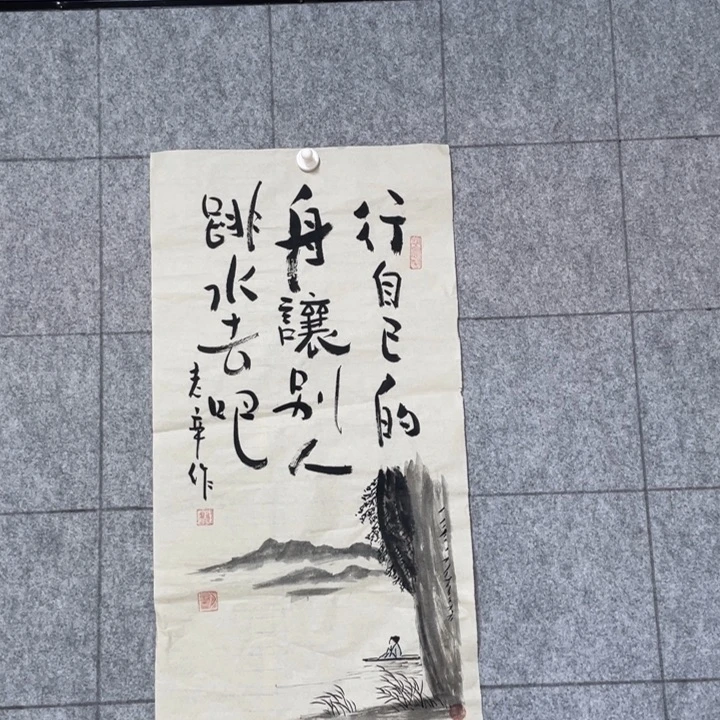 行自己的
舟讓别人
跳水去吧
老辛作